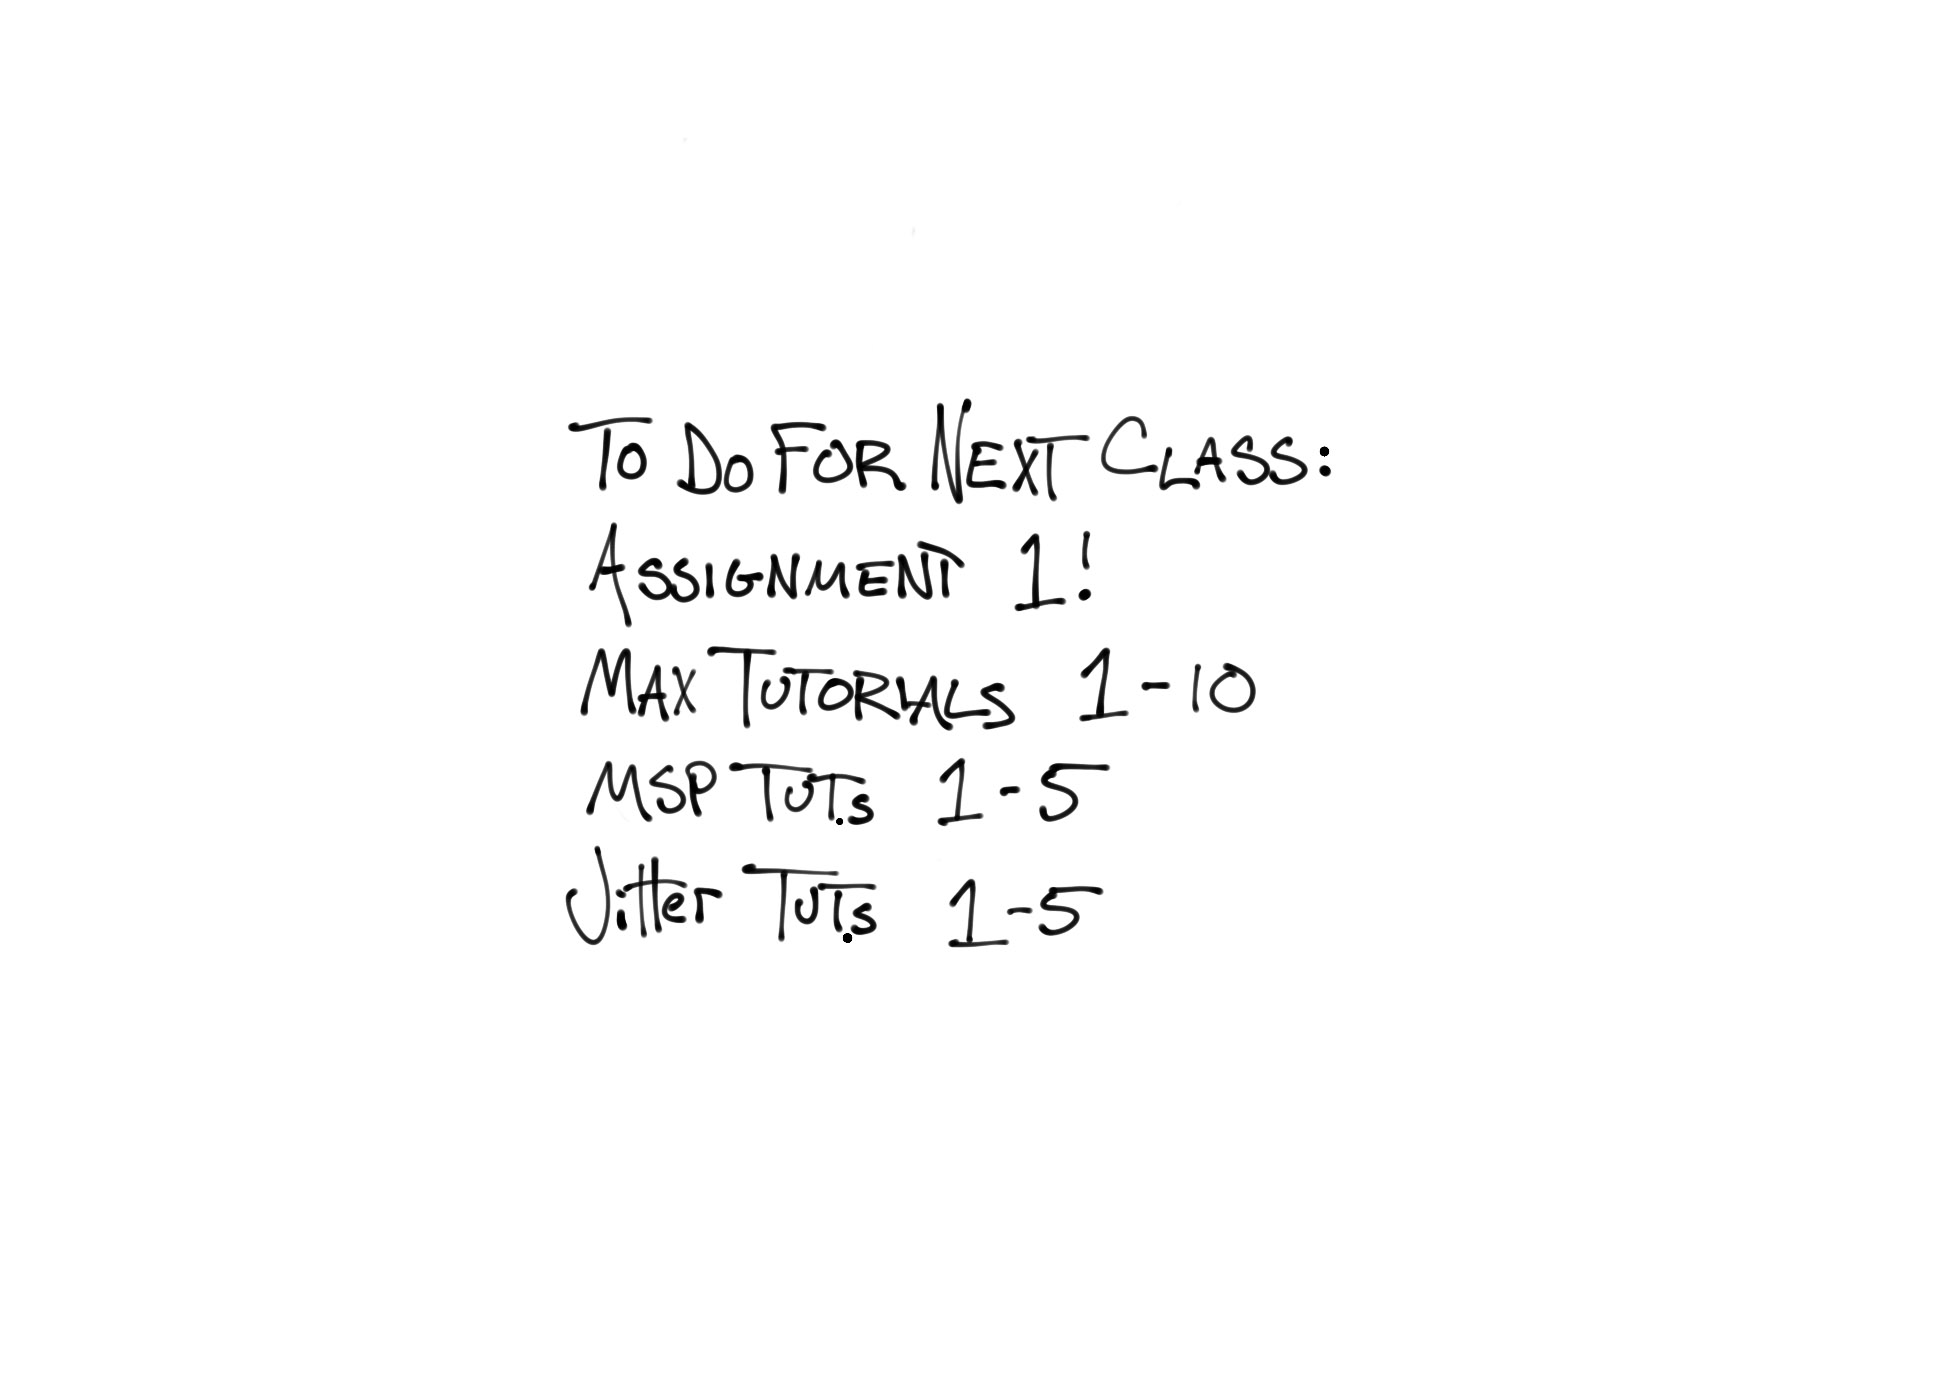 To Do For Next Class:
Assignment 1!
Max Tutorials 1-10
MSP Tut.s 1-5
Jitter Tut.s 1-5